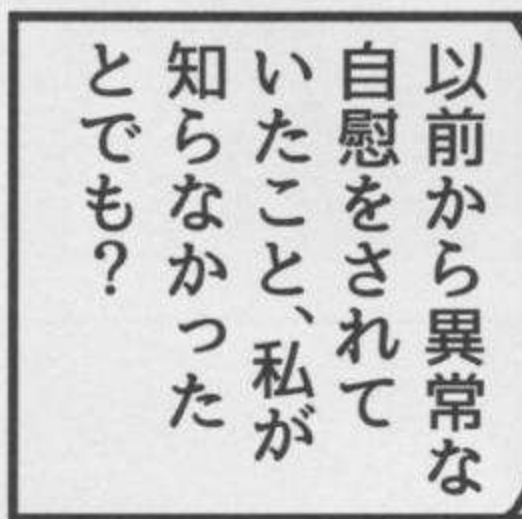 以前から異常な
自慰をされて
いたこと、私が
知らなかった
とでも？